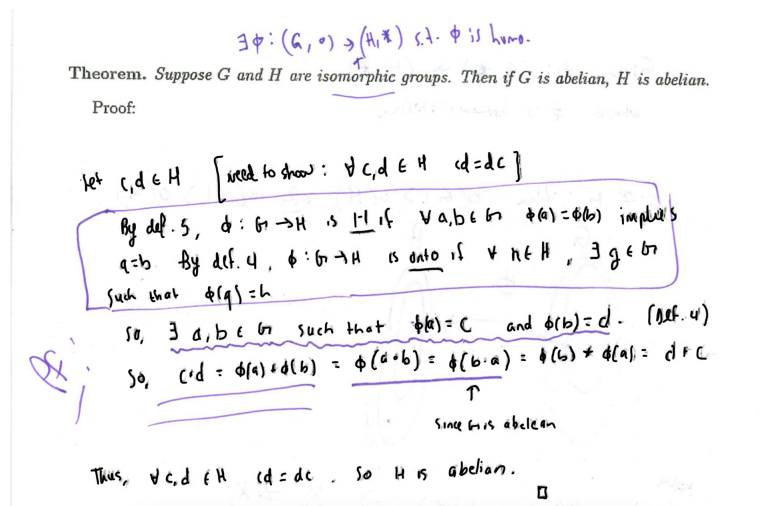 ∃ φ: (G, ∘) → (H, *) s.t. φ is homo.
Theorem. Suppose G and H are isomorphic groups. Then if G is abelian, H is abelian.
Proof:
let c,d ∈ H [need to show: ∀ c,d ∈ H cd = dc]
By def. 5, φ: G → H is 1-1 if ∀ a,b ∈ G φ(a) = φ(b) implies
a=b. By def. 4, φ: G → H is onto if ∀ h ∈ H, ∃ g ∈ G
such that φ(g) = h
so, ∃ a,b ∈ G such that φ(a) = c and φ(b) = d. (Def. 4)
So, c*d = φ(a) * φ(b) = φ(a∘b) = φ(b∘a) = φ(b) * φ(a) = d * c
↑
Since G is abelean
Thus, ∀ c,d ∈ H cd = dc. So H is abelian.
□